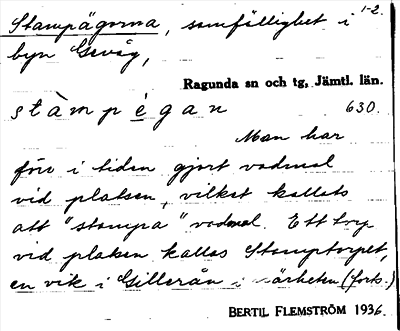 Stampägorna, samfällighet i 1-2.
byn Gevåg,
Ragunda sn och tg, Jämtl. län.
stàmpégan 630.
Man har
förr i tiden gjort vadmal
vid platsen, vilket kallats
att "stampa" vadmal. Ett torp
vid platsen kallas Stamptorpet,
en vik i Gillerån i närheten (forts.)
BERTIL FLEMSTRÖM 1936.